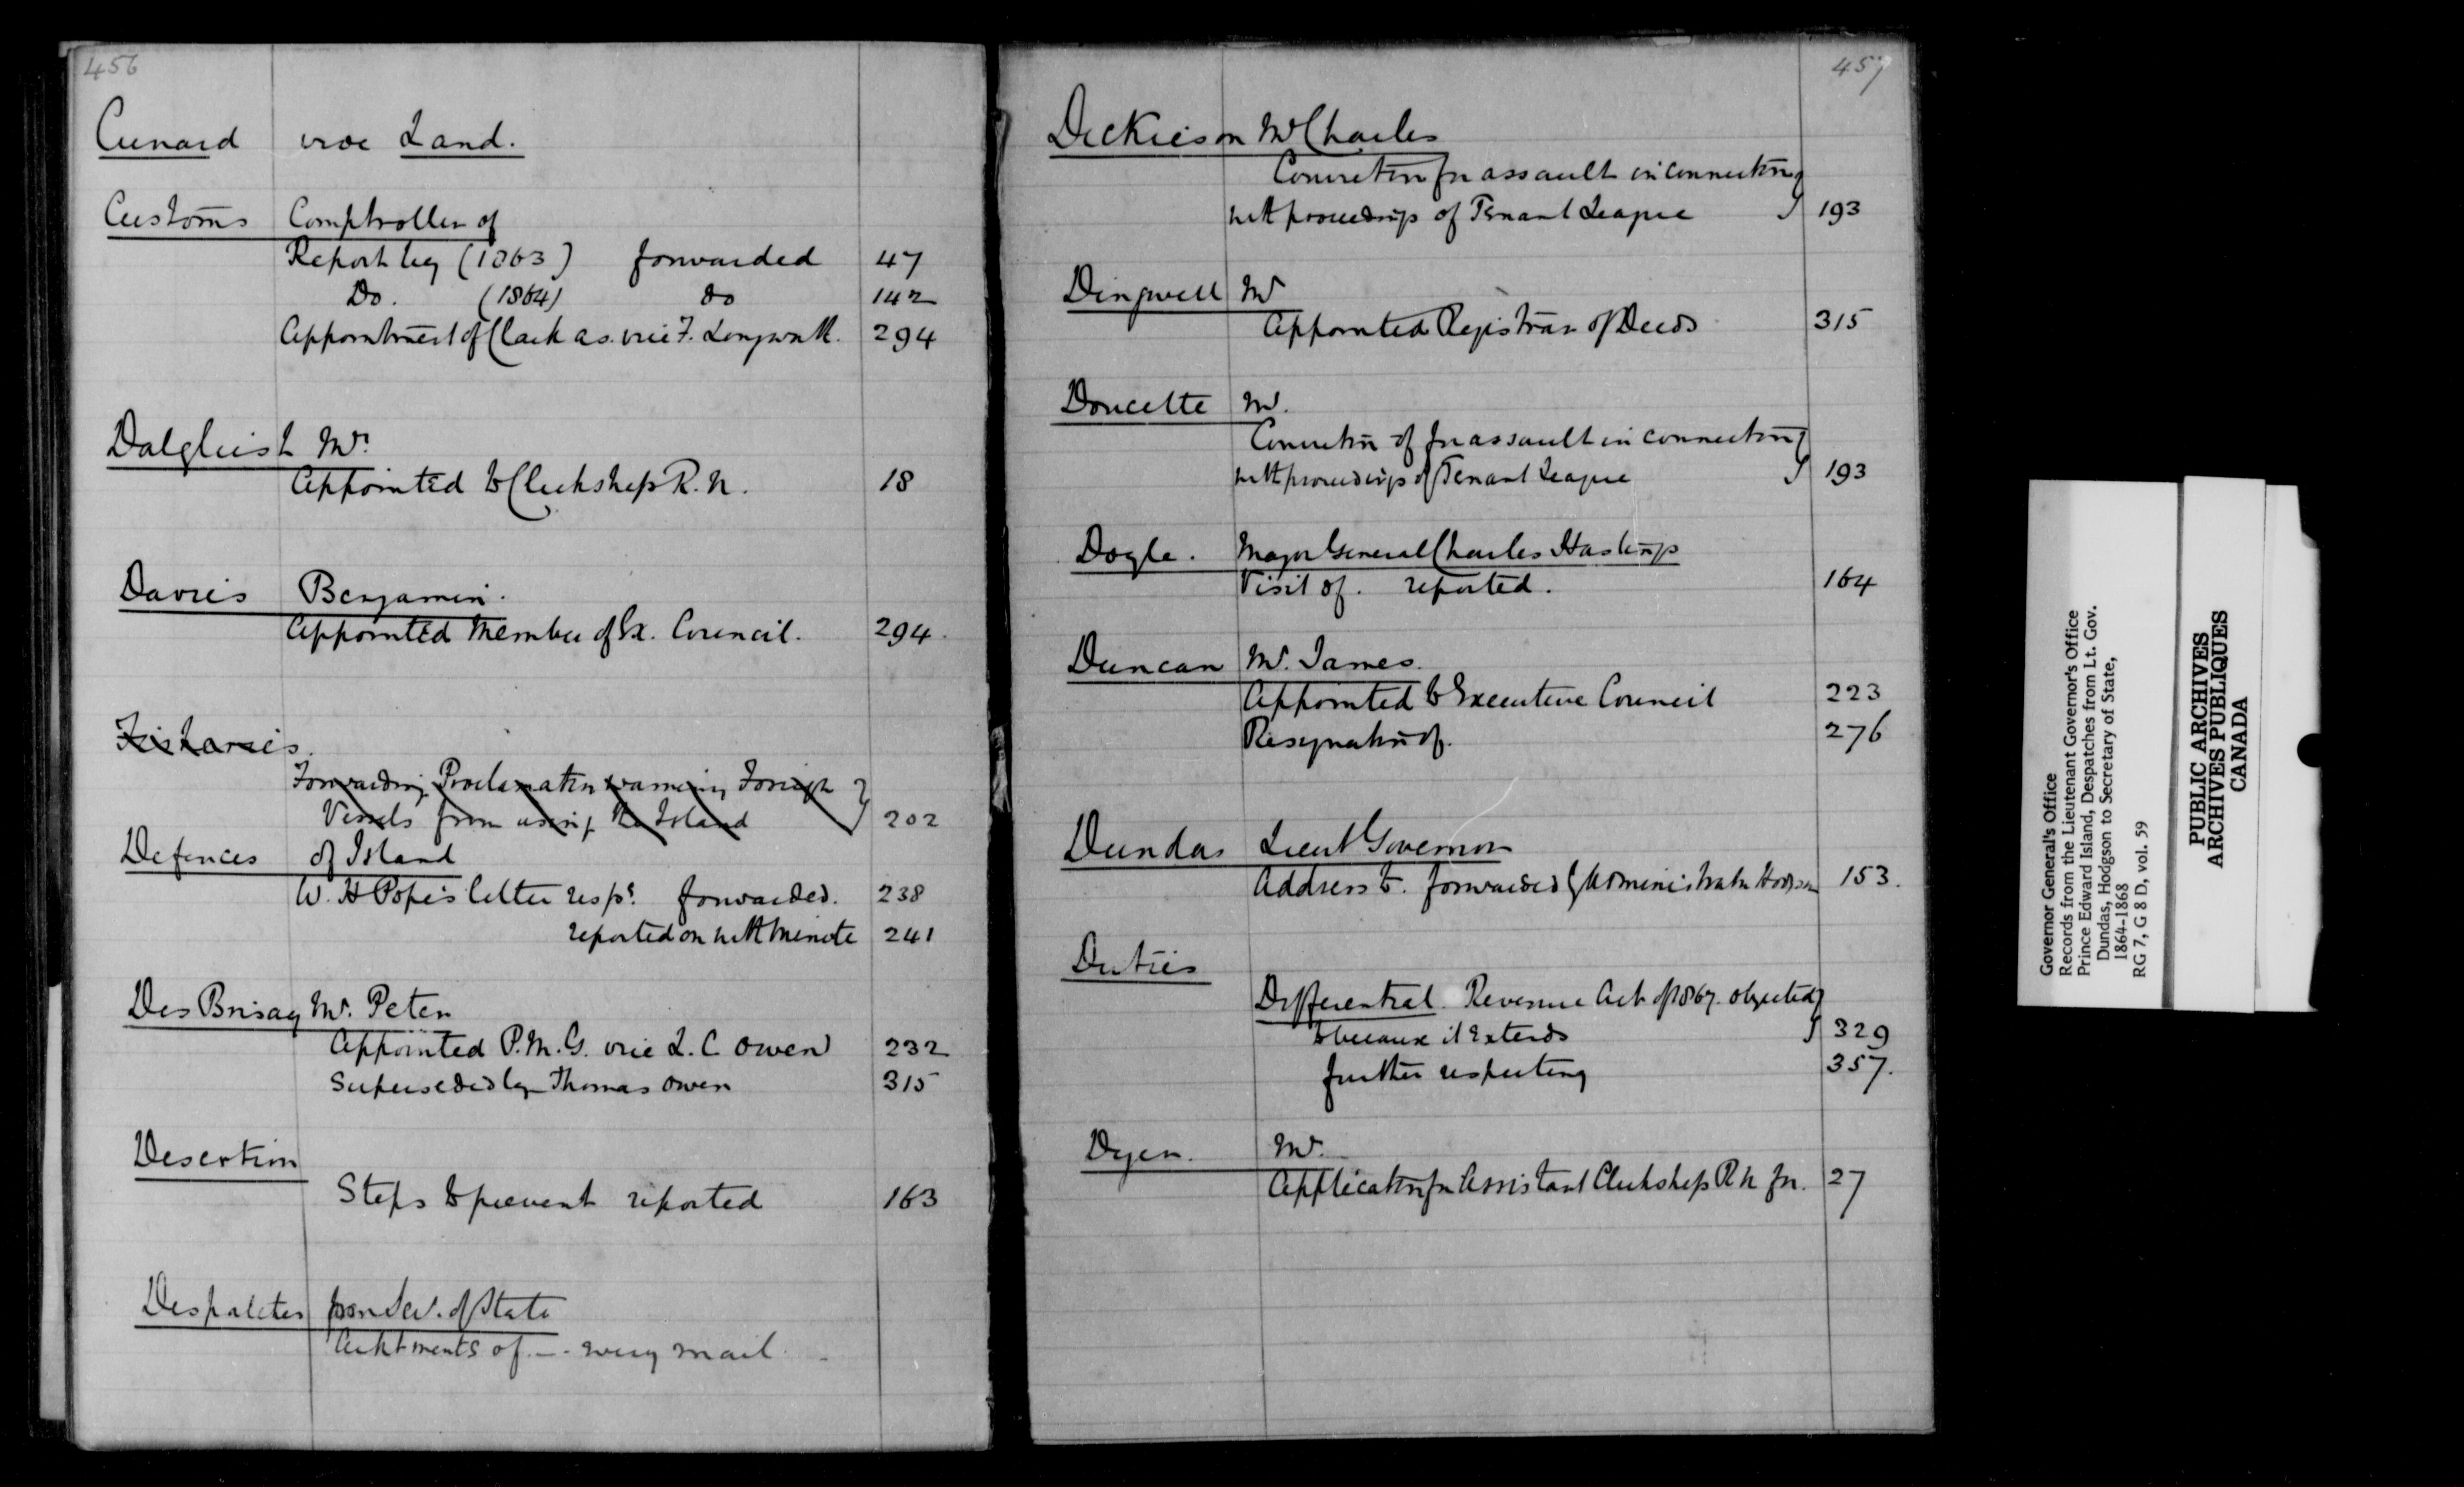 456
Cunard vide Land.
Customs Comptroller of
Report by (1863) forwarded 47
Do. (1864) do 142
Appointment of Clark as. vice F. Longworth. 294
Dalgleish Mr.
Appointed to Clerkship R. N. 18
Davies Benjamin.
Appointed Member of Ex. Council. 294.
Fisheries.
Forwarding Proclamation warning Foreign
Vessels from using the Island 202
Defences of Island
W. H Pope's letter resp:g forwarded. 238
reported on with minute 241
Des Brisay Mr. Peter
Appointed P.M.G. vice L. C Owen 232
Superseded by Thomas Owen 315
Desertion
Steps to prevent reported 163
Despatches from Sec. of State
of — every mail
457
Dickieson Mr Charles
Conviction for assault in connection
with proceedings of Tenant League 193
Dingwell Mr
Appointed Registrar of Deeds 315
Doucette Mr.
Conviction of for assault in connection
with proceedings of Tenant League 193
Doyle. Major General Charles Hastings
Visit of. reported. 164
Duncan Mr. James.
Appointed to Executive Council 223
Resignation of. 276
Dundas Lieut Governor
Address to. forwarded by Administrator Hodgson 153.
Duties
Differential. Revenue Act of 1867. objected
to because it extends 329
further respecting 357.
Dyer. Mr.
Application for Assistant Clerkship R N for. 27
Governor General's Office
Records from the Lieutenant Governor's Office
Prince Edward Island, Despatches from Lt. Gov.
Dundas, Hodgson to Secretary of State,
1864-1868
RG 7, G 8 D, vol. 59
PUBLIC ARCHIVES
ARCHIVES PUBLIQUES
CANADA